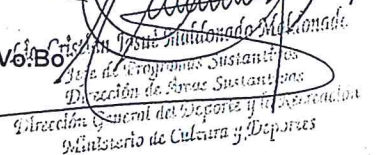 Vo.Bo.
Josué Maldonado Maldonado
Jefe de Programas Sustantivos
Dirección de Áreas Sustantivas
Dirección General del Deporte y la Recreación
Ministerio de Cultura y Deportes